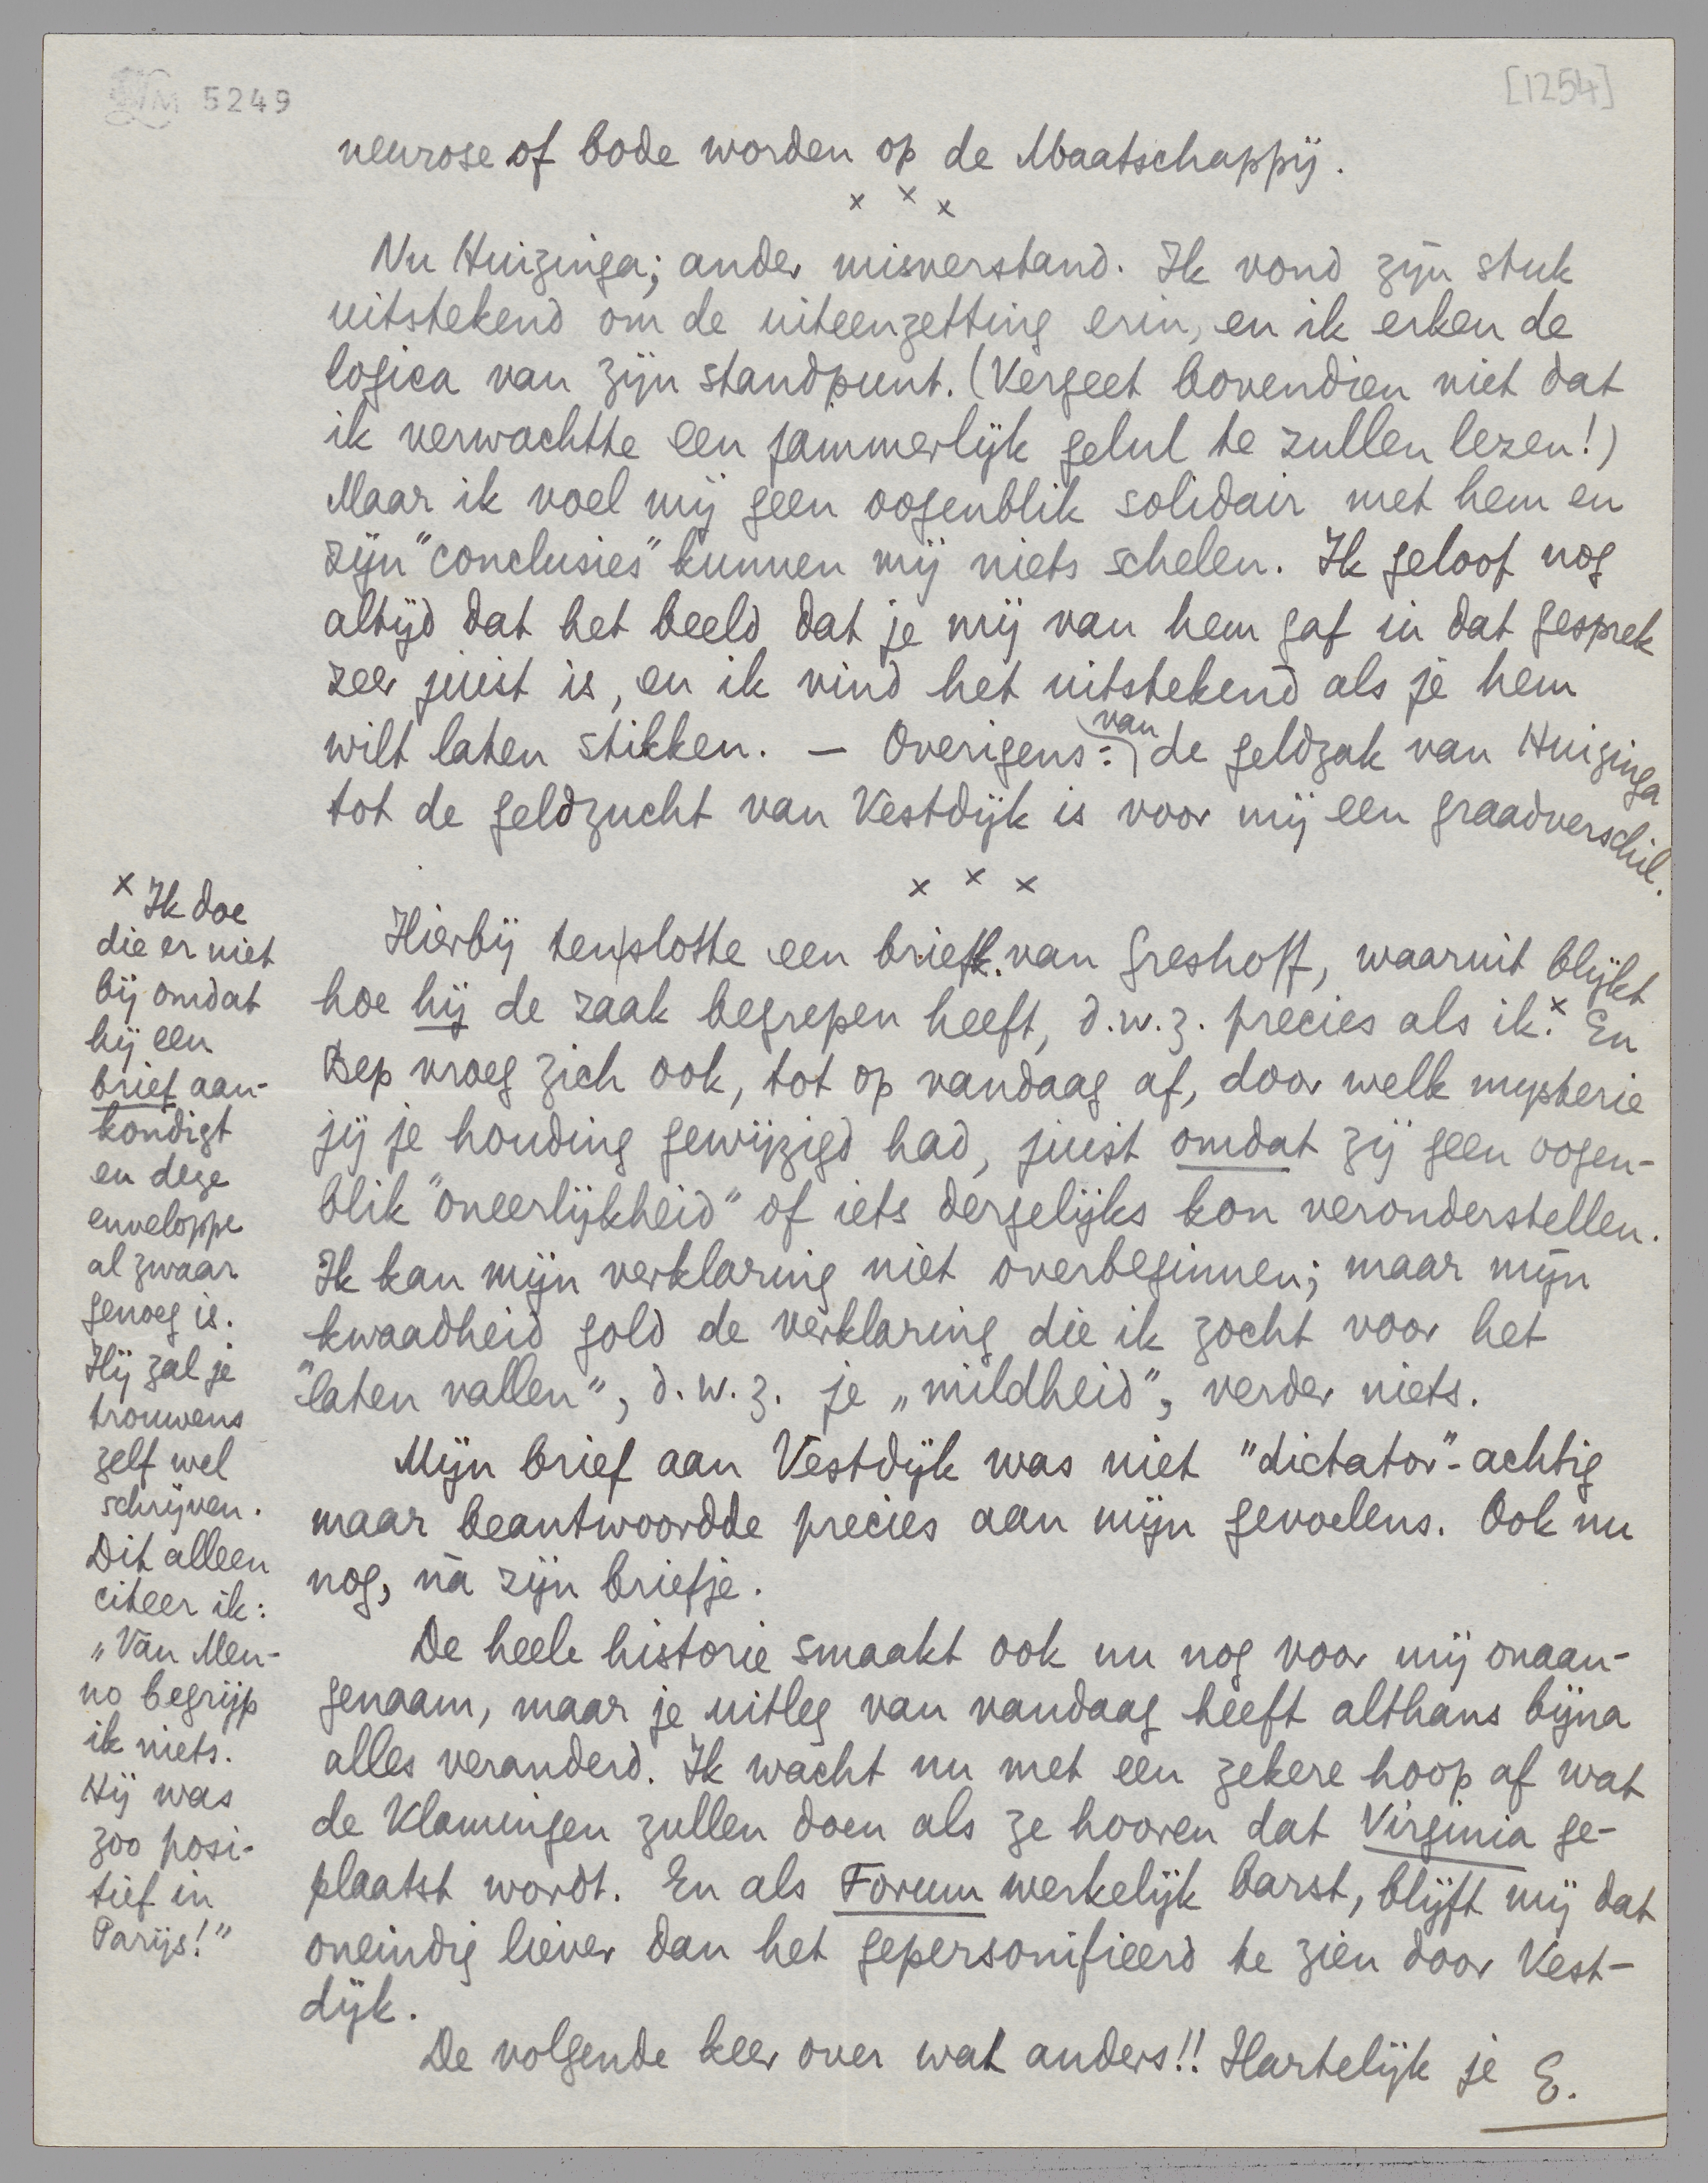 LM 5249
[1254]
neurose of bode worden op de Maatschappij.
x x x
Nu Huizinga; ander misverstand. Ik vond zijn stuk
uitstekend om de uiteenzetting erin, en ik erken de
logica van zijn standpunt. (Vergeet bovendien niet dat
ik verwachtte een jammerlijk gelul te zullen lezen!)
Maar ik voel mij geen oogenblik solidair met hem en
zijn "conclusies" kunnen mij niets schelen. Ik geloof nog
altijd dat het beeld dat je mij van hem gaf in dat gesprek
zeer juist is, en ik vind het uitstekend als je hem
wilt laten stikken. – Overigens: van de geldzak van Huizinga
tot de geldzucht van Vestdijk is voor mij een graadverschil.
x x x
Hierbij tenslotte een brief van Greshoff, waaruit blijkt
hoe hij de zaak begrepen heeft, d.w.z. precies als ik.x En
Bep vroeg zich ook, tot op vandaag af, door welk mysterie
jij je houding gewijzigd had, juist omdat zij geen oogen-
blik "oneerlijkheid" of iets dergelijks kon veronderstellen.
Ik kan mijn verklaring niet overbeginnen; maar mijn
kwaadheid gold de verklaring die ik zocht voor het
"laten vallen", d.w.z. je „mildheid", verder niets.
Mijn brief aan Vestdijk was niet "dictator"-achtig
maar beantwoordde precies aan mijn gevoelens. Ook nu
nog, ná zijn briefje.
De heele historie smaakt ook nu nog voor mij onaan-
genaam, maar je uitleg van vandaag heeft althans bijna
alles veranderd. Ik wacht nu met een zekere hoop af wat
de Vlamingen zullen doen als ze hooren dat Virginia ge-
plaatst wordt. En als Forum werkelijk barst, blijft mij dat
oneindig liever dan het gepersonifieerd te zien door Vest-
dijk.
De volgende keer over wat anders!! Hartelijk je E.
x Ik doe
die er niet
bij omdat
hij een
brief aan-
kondigt
en deze
enveloppe
al zwaar
genoeg is.
Hij zal je
trouwens
zelf wel
schrijven.
Dit alleen
citeer ik:
„Van Men-
no begrijp
ik niets.
Hij was
zoo posi-
tief in
Parijs!"